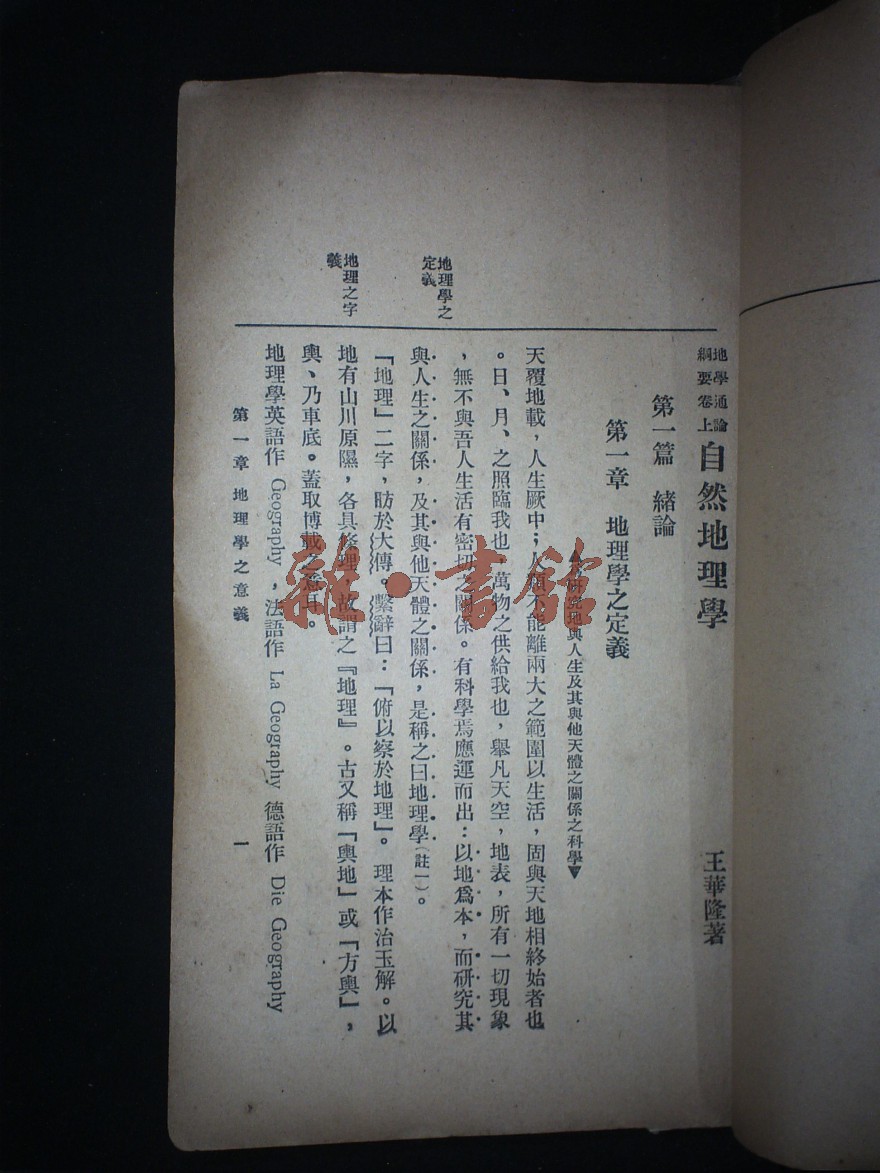 地學通論
綱要卷上
自然地理學
王華隆著
第一篇 緒論
第一章 地理學之定義
▲研究地與人生及其與他天體之關係之科學▼
天覆地載，人生厥中；人類不能離兩大之範圍以生活，固與天地相終始者也
。日、月、之照臨我也，萬物之供給我也，舉凡天空，地表，所有一切現象
，無不與吾人生活有密切之關係。有科學焉應運而出：以地爲本，而研究其
與人生之關係，及其與他天體之關係，是稱之曰地理學（註一）。
「地理」二字，昉於大傳。繫辭曰：「俯以察於地理」。理本作治玉解。以
地有山川原隰，各具條理，故謂之『地理』。古又稱「輿地」或「方輿」，
輿、乃車底。蓋取博載之意耳。
地理學英語作 Geography ，法語作 La Geography 德語作 Die Geography
地理學之
定義
地理之字
義
第一章 地理學之意義
一
雜·書館